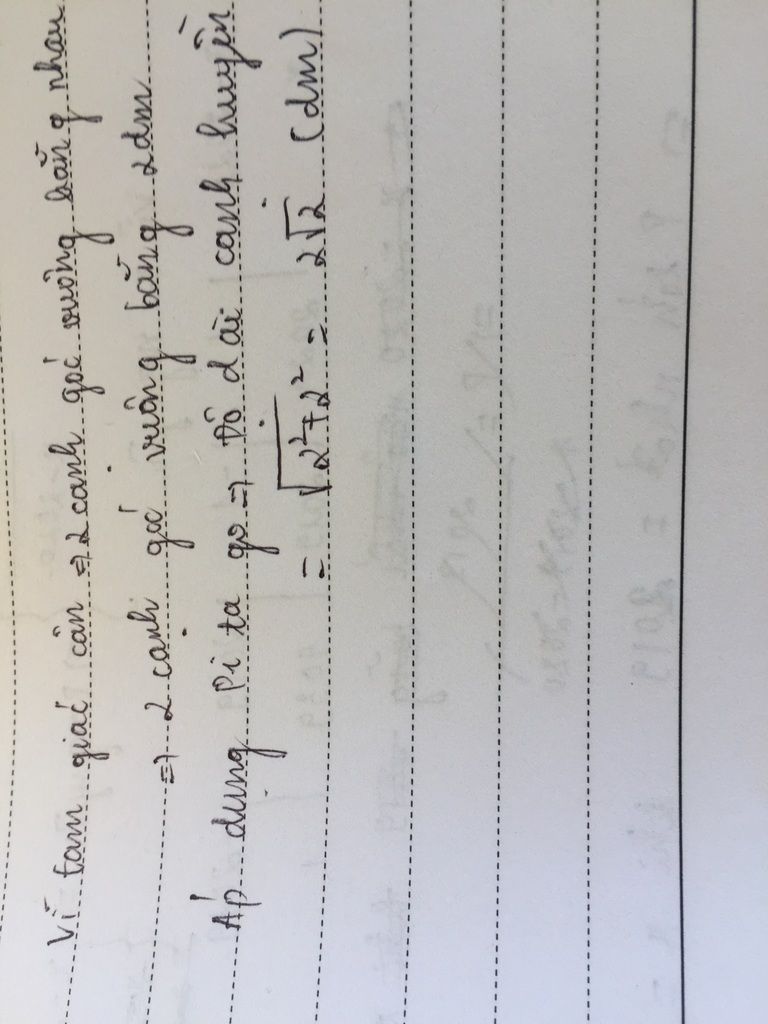 Vì tam giác cân => 2 cạnh góc vuông bằng nhau
=> 2 cạnh góc vuông bằng 2dm
Áp dụng Pi ta go => Độ dài cạnh huyền
= √(2²+2²) = 2√2 (dm)